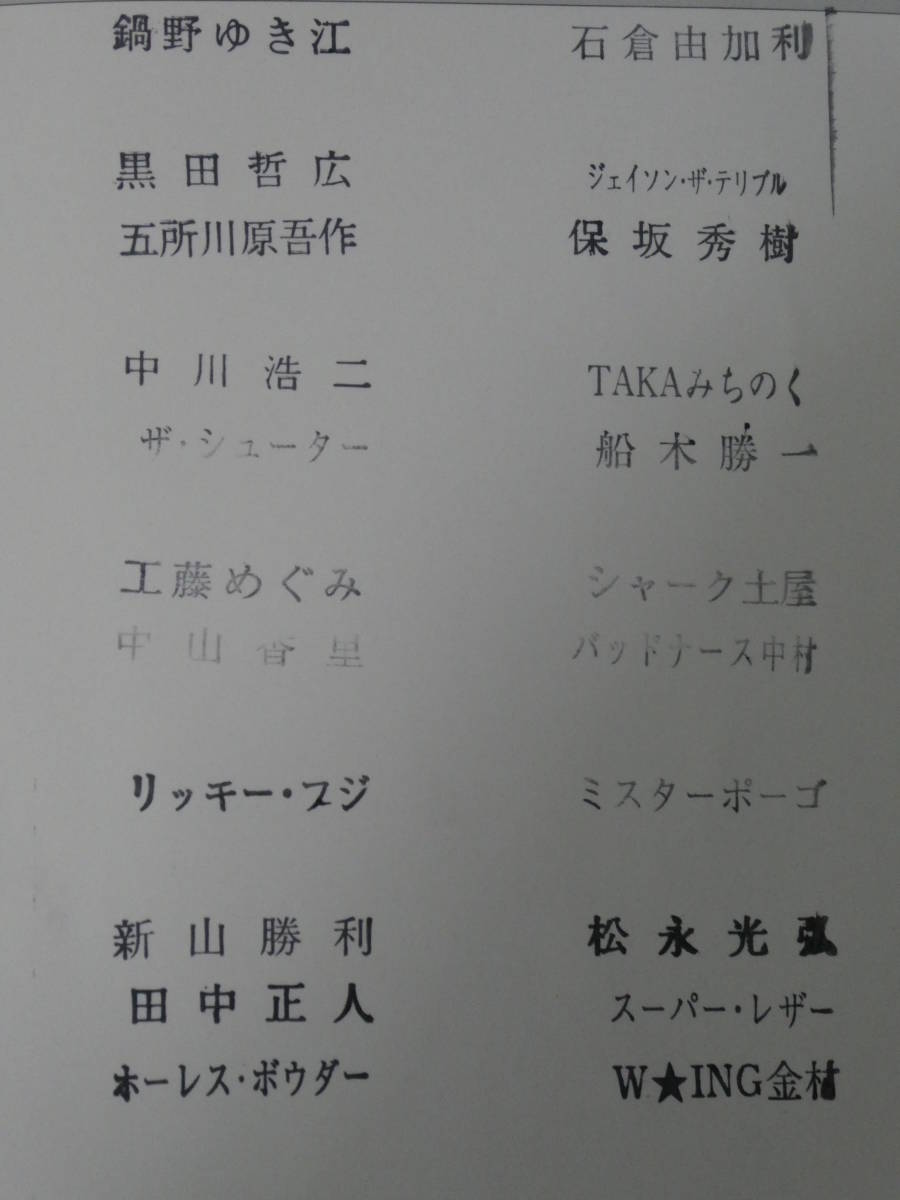 鍋野ゆき江 石倉由加利
黒田哲広 ジェイソン・ザ・テリブル
五所川原吾作 保坂秀樹
中川浩二 TAKAみちのく
ザ・シューター 船木勝一
工藤めぐみ シャーク土屋
中山香里 バッドナース中村
リッキー・フジ ミスターポーゴ
新山勝利 松永光弘
田中正人 スーパー・レザー
ホーレス・ボウダー W★ING金村